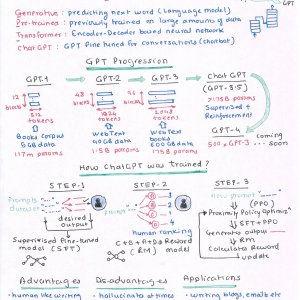 Generative : predicting next word (Language model)
Pre-trained : previously trained on large amounts of data
Transformer : Encoder-Decoder based neural network
Chat GPT : GPT fine tuned for conversations (chatbot)
GPT Progression
GPT-1 GPT-2 GPT-3 Chat GPT
(GPT-3.5)
12 blocks 48 blocks
512 tokens 1024 tokens 2048 tokens
Supervised +
Reinforcement
Books Corpus WebText WebText
books
5GB data 40GB data 600GB data
117m params 1.5B params 175B params
GPT-4 coming soon
500 x GPT-3
How ChatGPT was trained?
STEP-1 STEP-2 STEP-3
Prompts dataset
desired output
Prompts
human ranking
new prompt
(PPO)
Proximity Policy Optimz^n
Generate output
RM
Calculates Reward
update
Supervised Fine-tuned model
(SFT)
Reward model
(RM)
Advantages Disadvantages Applications
· human like writing · hallucinate at times · writing blogs, emails etc